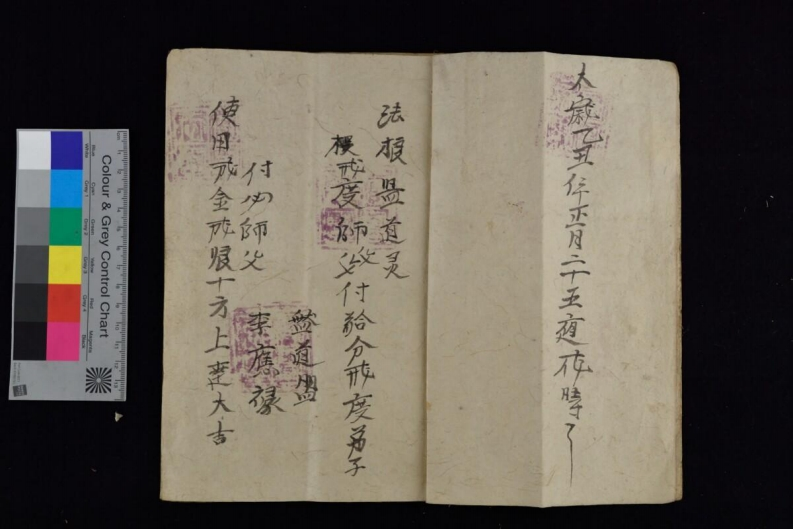 太歲乙丑年正月二十五夜戌時了
法根盤道灵
模戒度師父付給分戒度弟子
盤道盟
李應祿
付為師父
使用戒金戒銀十方上達大吉
Colour & Grey Control Chart